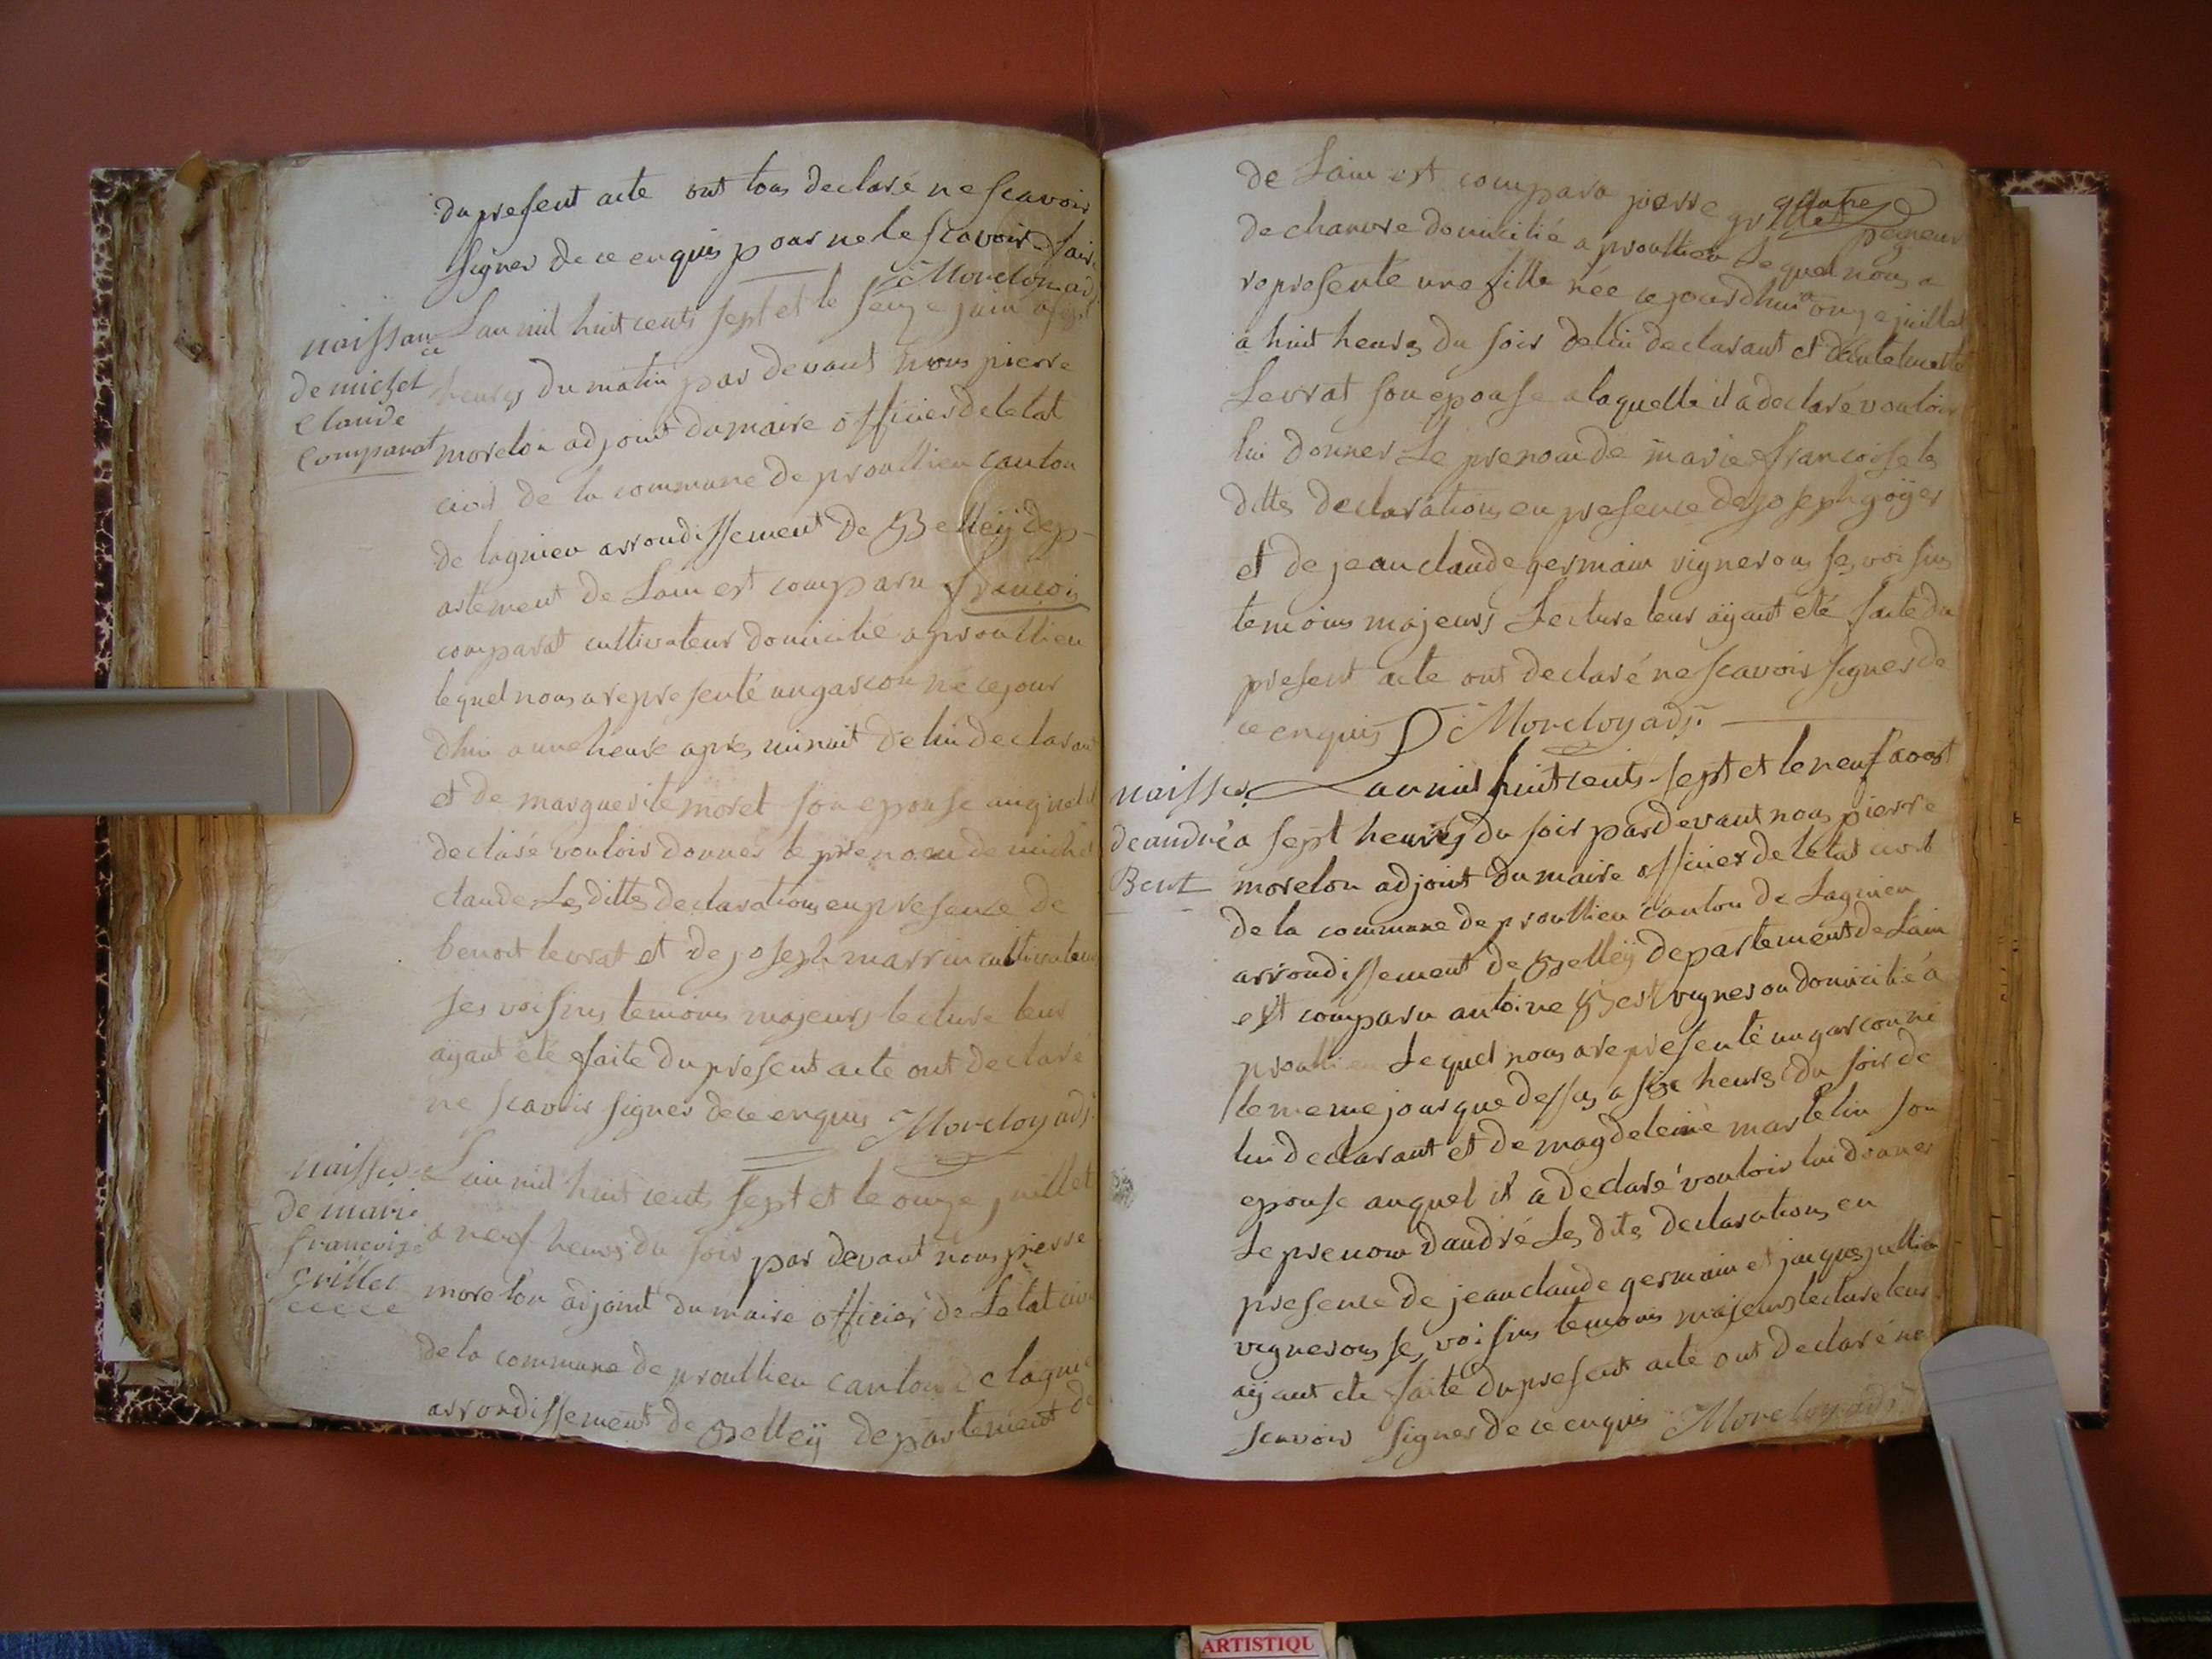 du present acte ont tous declaré ne scavoir
signer de ce enquis pour ne le scavoir faire
Morelon adj
naissan
ce
de michel
claude
comparat
Lan mil huit cents sept et le seize juin a sept
heures du matin par devant nous pierre
morelon adjoint du maire officier de letat
civil de la commune de proullieu canton
de lagnieu arrondissement de Belleÿ dep-
artement de Lain est comparu françois
comparat cultivateur domicilié a proullieu
lequel nous a representé un garcon né cejour
dhui a une heure apres minuit de lui declarant
et de marguerite moret son epouse auquel il
declaré vouloir donner le prenom de michel
claude Les dittes declarations en presence de
benoit levrat et de joseph marrin cultivateurs
ses voisins temoins majeurs lecture leur
aÿant eté faite du present acte ont declaré
ne scavoir signer de ce enquis Moreloy adj.
naissce
de marie
françoise
grillet
Lan mil huit cents sept et le onze juillet
a neuf heures du soir par devant nous pierre
morelon adjoint du maire officier de Letat civil
de la commune de proullieu canton de lagnieu
arrondissement de Belleÿ departement de
quatre
de Lain est comparu pierre grillet peigneur
de chanvre domicilié a proullieu Lequel nous a
representé une fille née cejourdhui onze juillet
a huit heures du soir de lui declarant et
Levrat son epouse a laquelle il a declaré vouloir
lui donner Le prenom de marie françoise les
dittes declarations en presence de joseph goÿer
et de jean claude germain vignerons ses voisins
temoins majeurs Lecture leur aÿant eté faite du
present acte ont declaré ne scavoir signer de
ce enquis Moreloy adj.
naissce
de andré
Bert
Lan mil huit cents sept et le neuf aoost
a sept heures du soir pardevant nous pierre
morelon adjoint du maire officier de letat civil
de la commune de proullieu canton de Lagnieu
arrondissement de Belleÿ departement de Lain
est comparu antoine Bert vigneron domicilié a
proullieu Lequel nous a representé un garcon né
le meme jour que dessus a six heures du soir de
lui declarant et de magdeleine martelin son
epouse auquel il a declaré vouloir lui donner
Le prenom dandré Les dites declarations en
presence de jean claude germain et jacques jullien
vignerons ses voisins temoins majeurs lecture leur
aÿant ete faite du present acte ont declaré ne
scavoir signer de ce enquis Moreloy adj.
ARTISTIQU